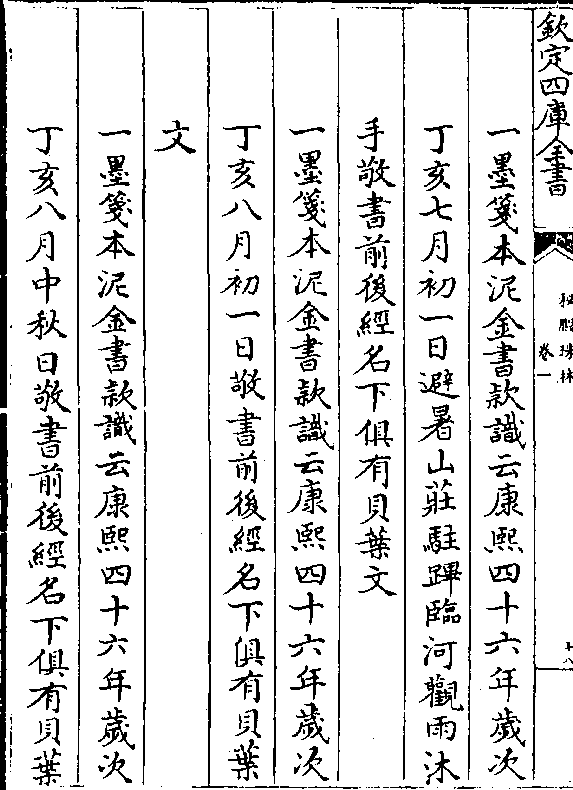 欽定四庫全書
秘殿珠林
卷一
十八
一墨箋本泥金書款識云康熙四十六年歲次
丁亥七月初一日避暑山莊駐蹕臨河觀雨沐
手敬書前後經名下俱有貝葉文
一墨箋本泥金書款識云康熙四十六年歲次
丁亥八月初一日敬書前後經名下俱有貝葉
文
一墨箋本泥金書款識云康熙四十六年歲次
丁亥八月中秋日敬書前後經名下俱有貝葉